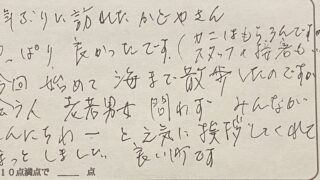 年ぶりに訪れたかどやさん
っぱり、良かったです。(カニはもちろんですが
スタッフ接客も
今回 始めて 海まで散歩したのですが
会う人 老若男女 問わず みんなが
んにちわー と元気に挨拶してくれて
っとしました。 良い町です
10点満点で 点